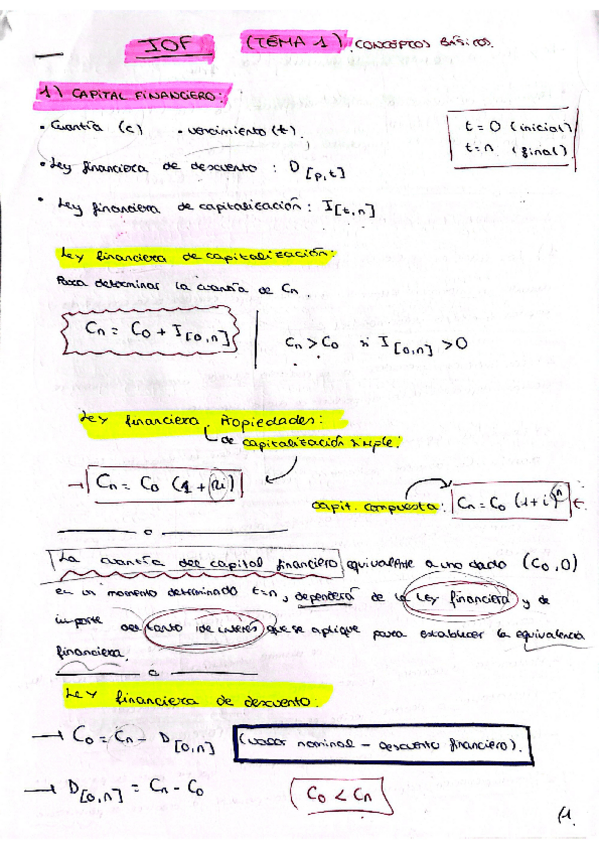 IOF (TEMA 1). CONCEPTOS BÁSICOS.
1) CAPITAL FINANCIERO:
• Cuantía (c) • vencimiento (t).
t = 0 (inicial)
t = n (final)
• Ley financiera de descuento : D[p,t]
• Ley financiera de capitalización : I[t,n]
Ley financiera de capitalización:
Para determinar la cuantía de Cn.
Cn = C0 + I[0,n]
Cn > C0 si I[0,n] > 0
Ley financiera. Propiedades:
de capitalización simple:
→ Cn = C0 (1 + ni)
capit. compuesta: Cn = C0 (1+i)^n
La cuantía del capital financiero equivalente a uno dado (C0,0)
en un momento determinado t=n, dependerá de la Ley financiera y de
importe del tanto de interés que se aplique para establecer la equivalencia
financiera.
Ley financiera de descuento.
→ C0 = Cn - D[0,n] (valor nominal - descuento financiero).
→ D[0,n] = Cn - C0
C0 < Cn
(1.